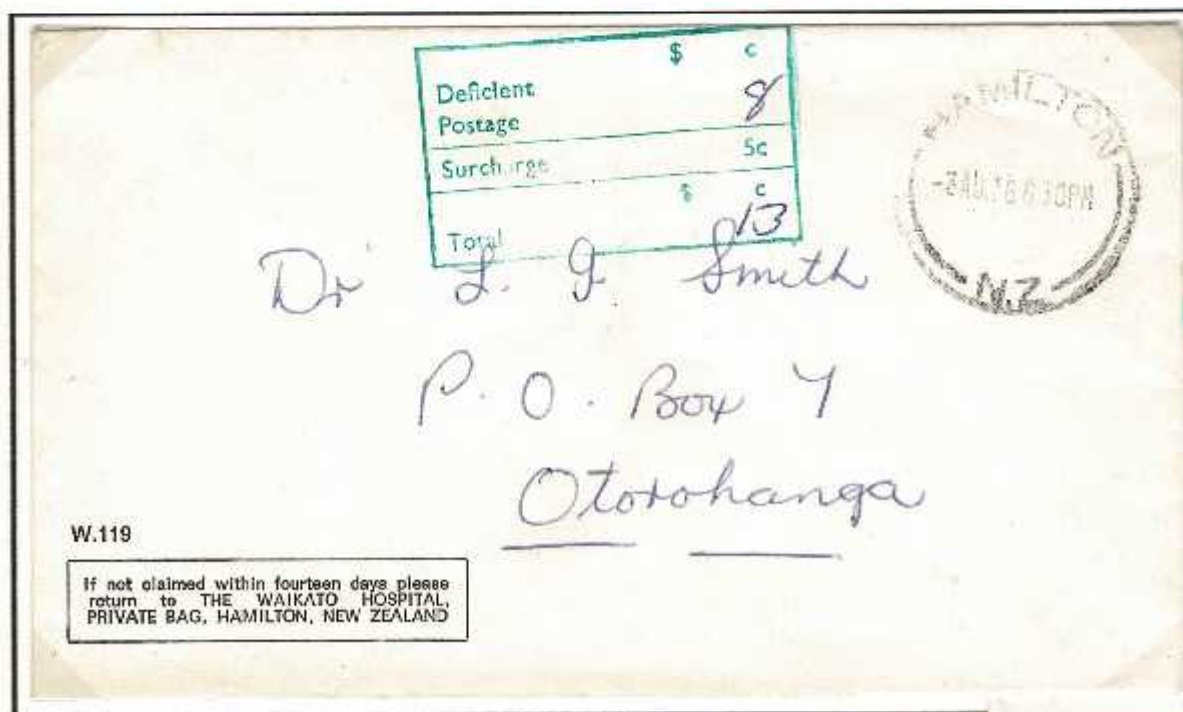 $ c
Deficient
Postage 8
Surcharge 5c
$ c
Total 13
HAMILTON
-3AU.76 630PM
N.Z
Dr L. G Smith
P. O. Box 7
Otorohanga
W.119
If not claimed within fourteen days please
return to THE WAIKATO HOSPITAL,
PRIVATE BAG, HAMILTON, NEW ZEALAND